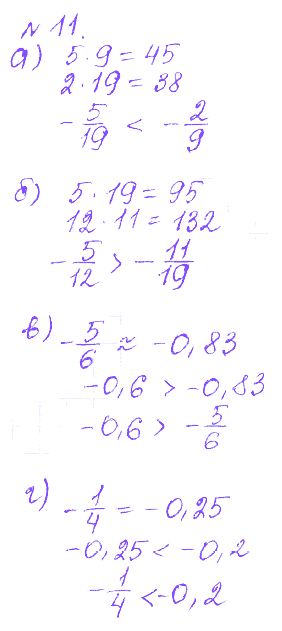 № 11.
а) 5 · 9 = 45
2 · 19 = 38
- 5/19 < - 2/9
б) 5 · 19 = 95
12 · 11 = 132
- 5/12 > - 11/19
в) - 5/6 ≈ -0,83
-0,6 > -0,83
-0,6 > - 5/6
г) - 1/4 = -0,25
-0,25 < -0,2
- 1/4 < -0,2